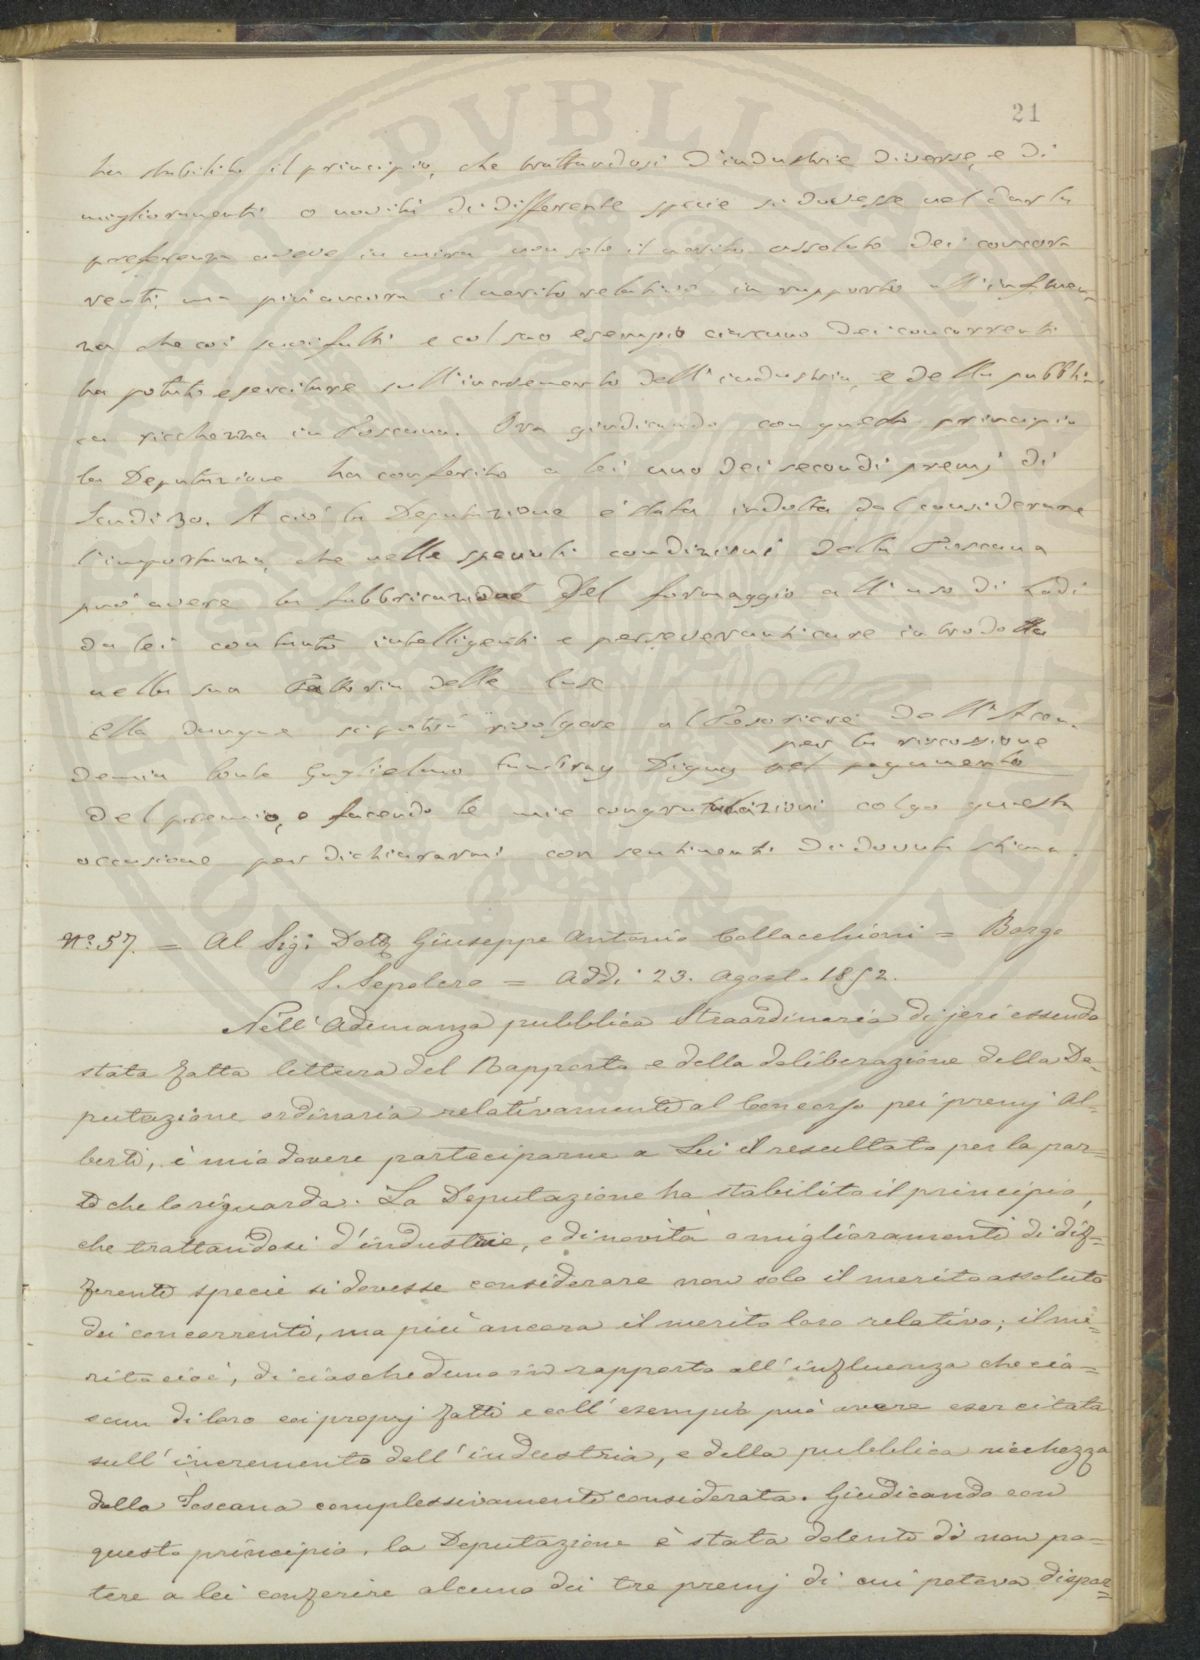 21
ha stabilito il principio, che trattandosi d'industrie diverse, e di
miglioramenti o novità di differente specie si dovesse nel dar la
preferenza avere in mira non solo il merito assoluto dei concor-
renti, ma più ancora il merito relativo in rapporto all'influen-
za che coi suoi fatti e col suo esempio ciascuno dei concorrenti
ha potuto esercitare sull'incremento dell'industria, e della pubbli-
ca ricchezza in Toscana. Ora giudicando con questo principio
la Deputazione ha conferito a lei uno dei secondi premj di
Scudi 20. A ciò la Deputazione è stata indotta dal considerare
l'importanza, che nelle speciali condizioni della Toscana
può avere la fabbricazione del formaggio all'uso di Lodi
da lei con tanto intelligenti e perseveranti cure introdotta
nella sua Fattoria delle
Ella dunque si potrà rivolgere al Tesoriere dell'Acca-
per la riscossione
demia Conte Guglielmo Cambray Digny pel pagamento
del premio, e facendo le mie congratulazioni colgo questa
occasione per dichiararmi con sentimenti di dovuta stima.
N.° 57. = Al Sig. Dott Giuseppe Antonio Collacchioni = Borgo
S. Sepolcro = Addi 23. Agost. 1852.
Nell'Adunanza pubblica Straordinaria di jeri essendo
stata fatta lettura del Rapporto e della deliberazione della De-
putazione ordinaria relativamente al Concorso pei premj Al-
berti, è mio dovere parteciparne a Lei il resultato per la par-
te che lo riguarda. La Deputazione ha stabilito il principio,
che trattandosi d'industrie, e di novità o miglioramenti di dif-
ferente specie si dovesse considerare non solo il merito assoluto
dei concorrenti, ma più ancora il merito loro relativo; il me-
rito cioè, di ciascheduno in rapporto all'influenza che cia-
scun di loro coi proprj fatti e coll'esempio può avere esercitata
sull'incremento dell'industria, e della pubblica ricchezza
della Toscana complessivamente considerata. Giudicando con
questo principio, la Deputazione è stata dolente di non po-
tere a lei conferire alcuno dei tre premj di cui poteva dispor-